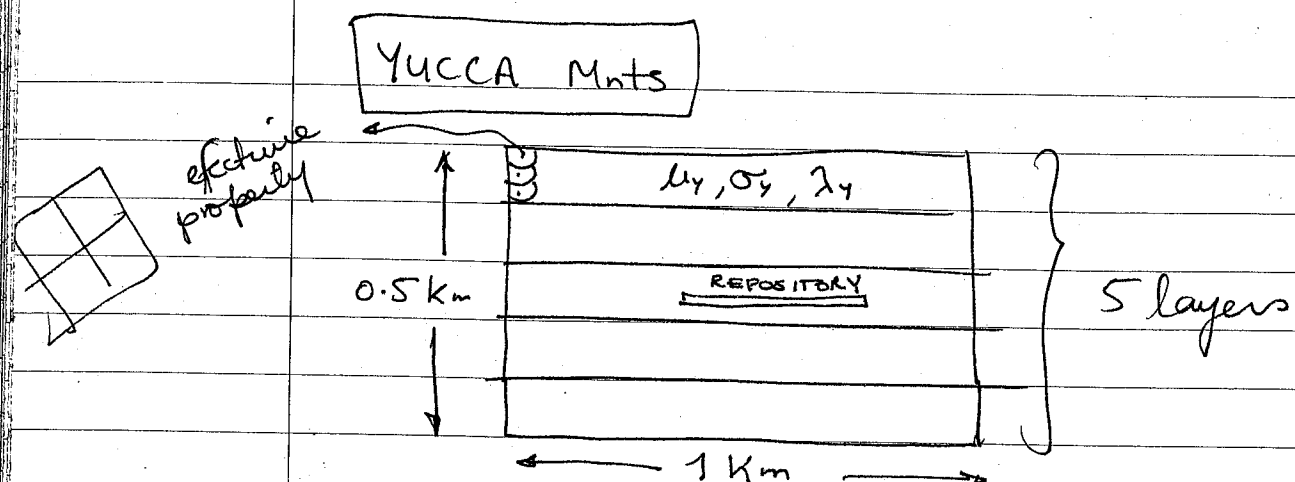 YUCCA Mnts
efectuive
property
μy, σy, λy
0.5 Km
REPOSITORY
5 layers
1 Km